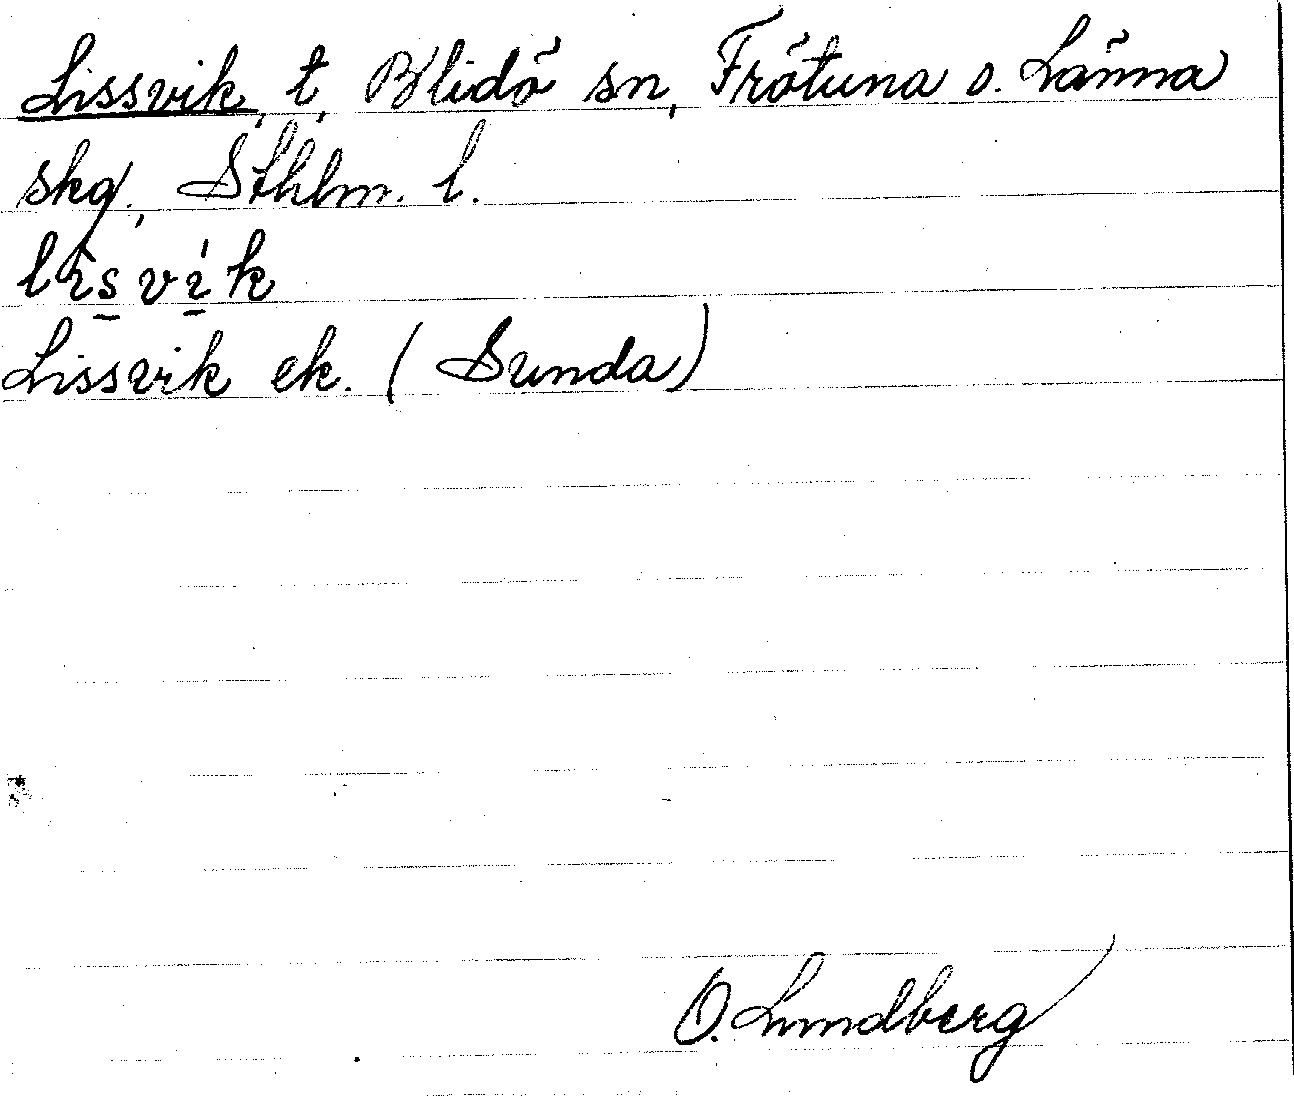 Lissvik, t, Blidö sn, Frötuna o. Länna
skg., Sthlm. l.
lis̲ví̲k
Lissvik ek. (Sunda)
O. Lundberg